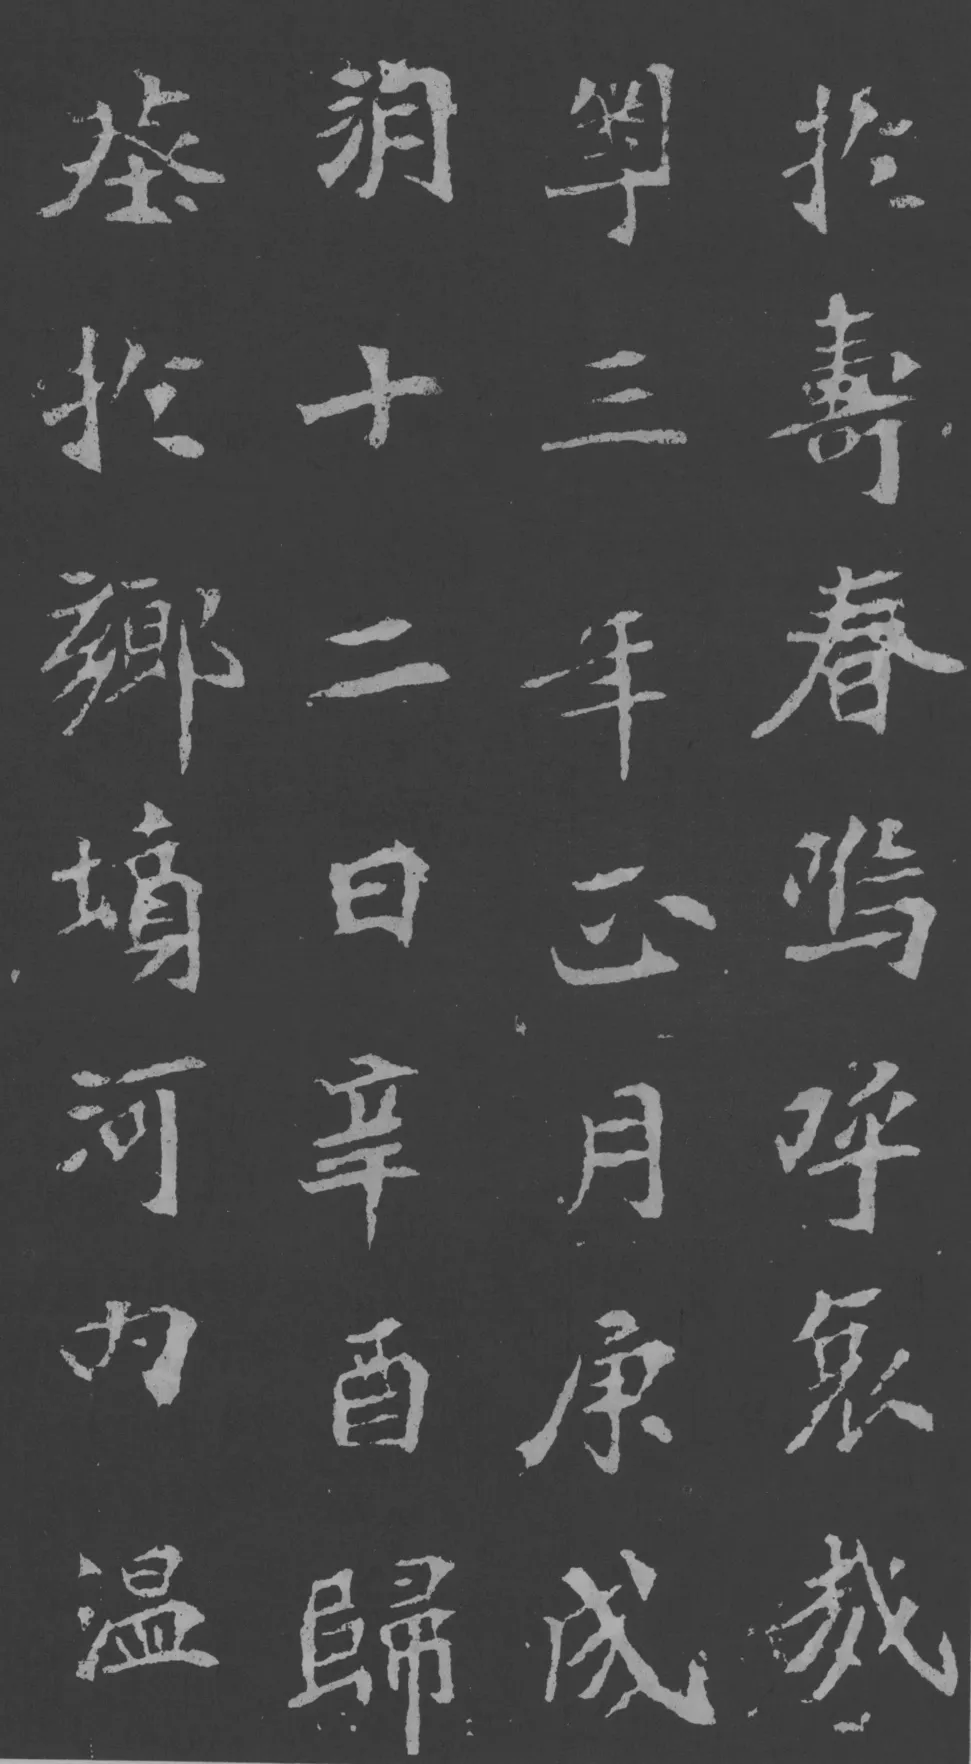 扵壽春嗚呼哀哉
粤三年正月庚戌
朔十二日辛酉歸
葬扵鄉墳河内温